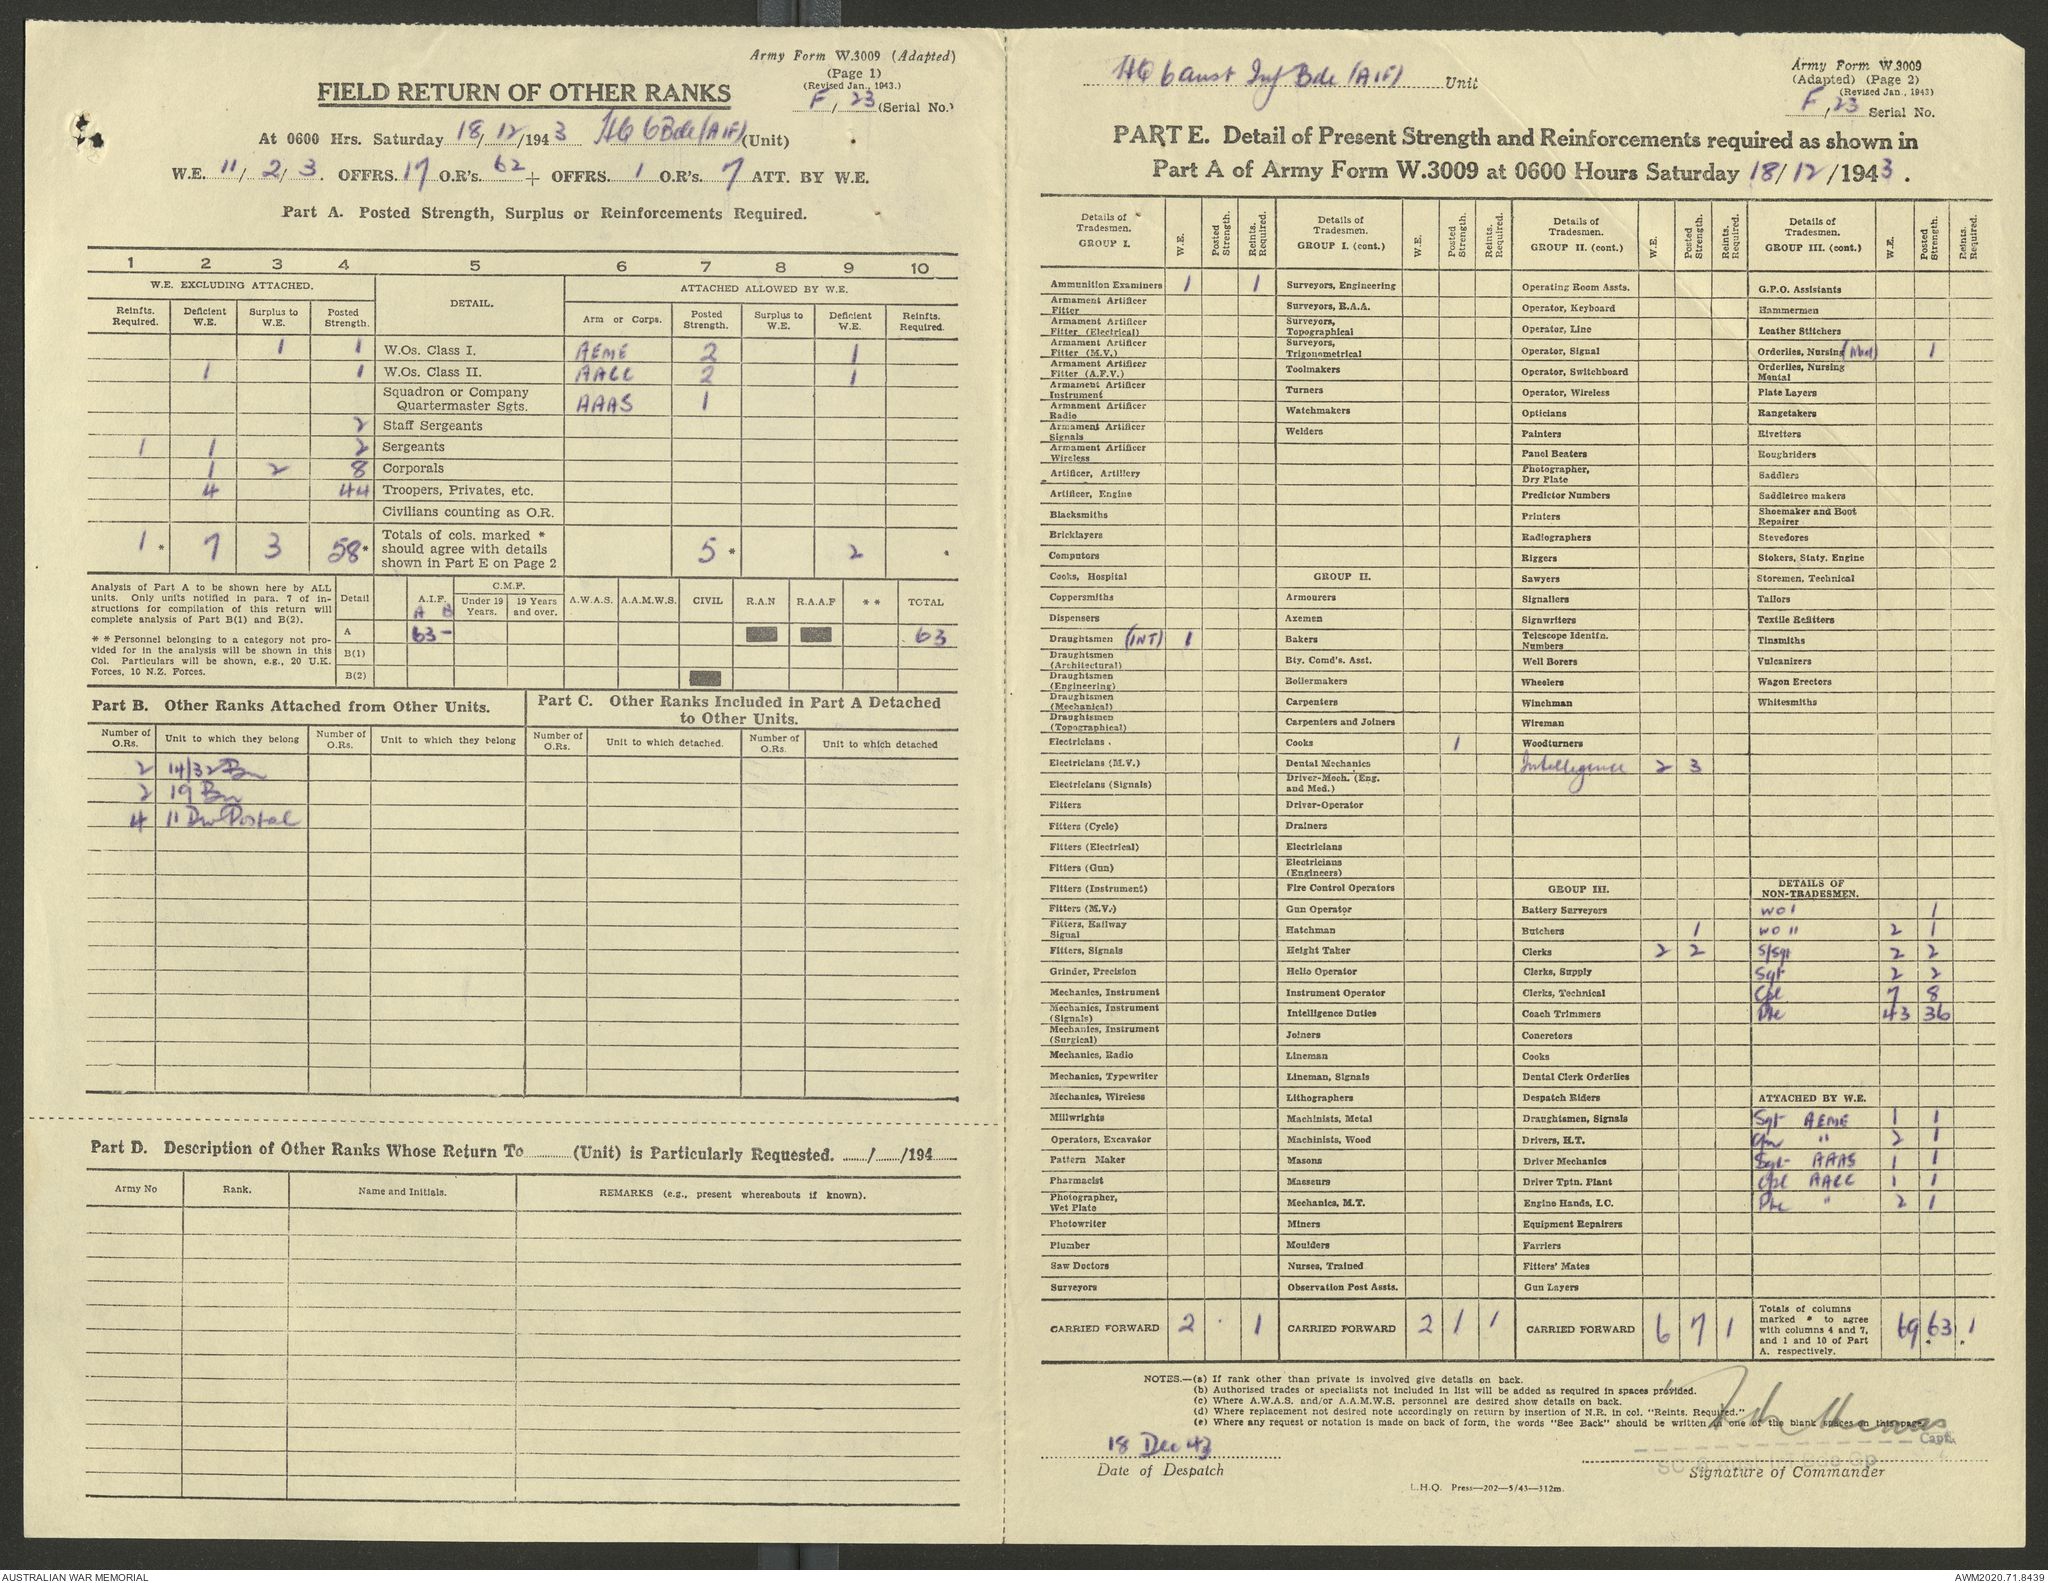 Army Form W.3009 (Adapted)
(Page 1)
(Revised Jan., 1943.)
FIELD RETURN OF OTHER RANKS
F/23 (Serial No.)
At 0600 Hrs. Saturday 18/12/1943 HQ 6 Bde (AIF) (Unit)
W.E. 11/2/3. OFFRS. 17 O.R's. 62 + OFFRS. 1 O.R's. 7 ATT. BY W.E.
Part A. Posted Strength, Surplus or Reinforcements Required.
1 2 3 4 5 6 7 8 9 10
W.E. EXCLUDING ATTACHED. DETAIL. ATTACHED ALLOWED BY W.E.
Reinfts. Required. Deficient W.E. Surplus to W.E. Posted Strength. Arm or Corps. Posted Strength. Surplus to W.E. Deficient W.E. Reinfts. Required.
1 1 W.Os. Class I. AEME 2 1
1 1 W.Os. Class II. AACC 2 1
Squadron or Company Quartermaster Sgts. AAAS 1
2 Staff Sergeants
1 1 2 Sergeants
1 2 8 Corporals
4 44 Troopers, Privates, etc.
Civilians counting as O.R.
1 * 7 3 58 * Totals of cols. marked * should agree with details shown in Part E on Page 2 5 * 2 *
Analysis of Part A to be shown here by ALL units. Only units notified in para. 7 of instructions for compilation of this return will complete analysis of Part B(1) and B(2).
* * Personnel belonging to a category not provided for in the analysis will be shown in this Col. Particulars will be shown, e.g., 20 U.K. Forces, 10 N.Z. Forces.
Detail A.I.F. A B C.M.F. Under 19 Years. 19 Years and over. A.W.A.S. A.A.M.W.S. CIVIL R.A.N R.A.A.F * * TOTAL
A 63 - 63
B(1)
B(2)
Part B. Other Ranks Attached from Other Units.
Part C. Other Ranks Included in Part A Detached to Other Units.
Number of O.Rs. Unit to which they belong Number of O.Rs. Unit to which they belong Number of O.Rs. Unit to which detached. Number of O.Rs. Unit to which detached
2 14/32 Bn
2 19 Bn
4 11 Div Postal
Part D. Description of Other Ranks Whose Return To ........ (Unit) is Particularly Requested. ....../....../194......
Army No Rank. Name and Initials. REMARKS (e.g., present whereabouts if known).
HQ 6 Aust Inf Bde (AIF) Unit
Army Form W.3009
(Adapted) (Page 2)
(Revised Jan., 1943)
F/23 Serial No.
PART E. Detail of Present Strength and Reinforcements required as shown in
Part A of Army Form W.3009 at 0600 Hours Saturday 18/12/1943.
Details of Tradesmen. GROUP I. W.E. Posted Strength. Reints. Required.
Ammunition Examiners 1 1
Armament Artificer Fitter
Armament Artificer Fitter (Electrical)
Armament Artificer Fitter (M.V.)
Armament Artificer Fitter (A.F.V.)
Armament Artificer Instrument
Armament Artificer Radio
Armament Artificer Signals
Armament Artificer Wireless
Artificer, Artillery
Artificer, Engine
Blacksmiths
Bricklayers
Computors
Cooks, Hospital
Coppersmiths
Dispensers
Draughtsmen (INT) 1
Draughtsmen (Architectural)
Draughtsmen (Engineering)
Draughtsmen (Mechanical)
Draughtsmen (Topographical)
Electricians
Electricians (M.V.)
Electricians (Signals)
Fitters
Fitters (Cycle)
Fitters (Electrical)
Fitters (Gun)
Fitters (Instrument)
Fitters (M.V.)
Fitters, Railway Signal
Fitters, Signals
Grinder, Precision
Mechanics, Instrument
Mechanics, Instrument (Signals)
Mechanics, Instrument (Surgical)
Mechanics, Radio
Mechanics, Typewriter
Mechanics, Wireless
Millwrights
Operators, Excavator
Pattern Maker
Pharmacist
Photographer, Wet Plate
Photowriter
Plumber
Saw Doctors
Surveyors
CARRIED FORWARD 2 . 1
Details of Tradesmen. GROUP I. (cont.) W.E. Posted Strength. Reints. Required.
Surveyors, Engineering
Surveyors, R.A.A.
Surveyors, Topographical
Surveyors, Trigonometrical
Toolmakers
Turners
Watchmakers
Welders
GROUP II.
Armourers
Axemen
Bakers
Bty. Comd's. Asst.
Boilermakers
Carpenters
Carpenters and Joiners
Cooks 1
Dental Mechanics
Driver-Mech. (Eng. and Med.)
Driver-Operator
Drainers
Electricians
Electricians (Engineers)
Fire Control Operators
Gun Operator
Hatchman
Height Taker
Helio Operator
Instrument Operator
Intelligence Duties
Joiners
Lineman
Lineman, Signals
Lithographers
Machinists, Metal
Machinists, Wood
Masons
Masseurs
Mechanics, M.T.
Miners
Moulders
Nurses, Trained
Observation Post Assts.
CARRIED FORWARD 2 1 1
Details of Tradesmen. GROUP II. (cont.) W.E. Posted Strength. Reints. Required.
Operating Room Assts.
Operator, Keyboard
Operator, Line
Operator, Signal
Operator, Switchboard
Operator, Wireless
Opticians
Painters
Panel Beaters
Photographer, Dry Plate
Predictor Numbers
Printers
Radiographers
Riggers
Sawyers
Signallers
Signwriters
Telescope Identfn. Numbers
Well Borers
Wheelers
Winchman
Wireman
Woodturners
Intelligence 2 3
GROUP III.
Battery Surveyors
Butchers 1
Clerks 2 2
Clerks, Supply
Clerks, Technical
Coach Trimmers
Concretors
Cooks
Dental Clerk Orderlies
Despatch Riders
Draughtsmen, Signals
Drivers, H.T.
Driver Mechanics
Driver Tptn. Plant
Engine Hands, I.C.
Equipment Repairers
Farriers
Fitters' Mates
Gun Layers
CARRIED FORWARD 6 7 1
Details of Tradesmen. GROUP III. (cont.) W.E. Posted Strength. Reints. Required.
G.P.O. Assistants
Hammermen
Leather Stitchers
Orderlies, Nursing 1
Orderlies, Nursing Mental
Plate Layers
Rangetakers
Rivetters
Roughriders
Saddlers
Saddletree makers
Shoemaker and Boot Repairer
Stevedores
Stokers, Staty. Engine
Storemen, Technical
Tailors
Textile Refitters
Tinsmiths
Vulcanizers
Wagon Erectors
Whitesmiths
DETAILS OF NON-TRADESMEN.
WO I 1
WO II 2 1
S/Sgt 2 2
Sgt 2 2
Cpl 7 8
Pte 43 36
ATTACHED BY W.E.
Sgt AEME 1 1
Cfn " 2 1
Sgt AAAS 1 1
Cpl AACC 1 1
Pte " 2 1
Totals of columns marked * to agree with columns 4 and 7, and 1 and 10 of Part A. respectively. 69 63 * 1 *
NOTES.—(a) If rank other than private is involved give details on back.
(b) Authorised trades or specialists not included in list will be added as required in spaces provided.
(c) Where A.W.A.S. and/or A.A.M.W.S. personnel are desired show details on back.
(d) Where replacement not desired note accordingly on return by insertion of N.R. in col. "Reints. Required."
(e) Where any request or notation is made on back of form, the words "See Back" should be written in one of the blank spaces on this page.
18 Dec 43
Date of Despatch
Capt.
Signature of Commander
L.H.Q. Press—202—5/43—312m.
AUSTRALIAN WAR MEMORIAL
AWM2020.71.8439